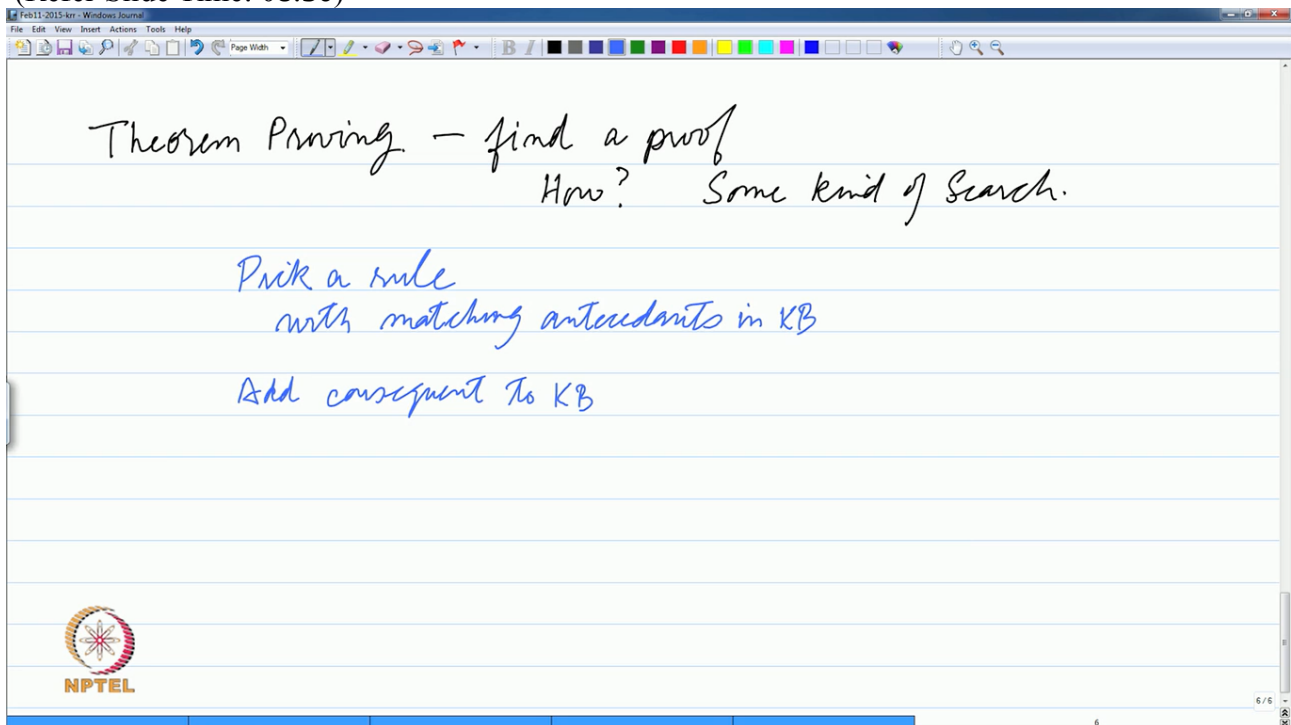 (Refer Slide Time: 03:38)
Feb11-2015-krr - Windows Journal
File Edit View Insert Actions Tools Help
Page Width
B I
Theorem Proving - find a proof
How? Some kind of Search.
Pick a rule
with matching antecedants in KB
Add consequent to KB
NPTEL
6/6
6